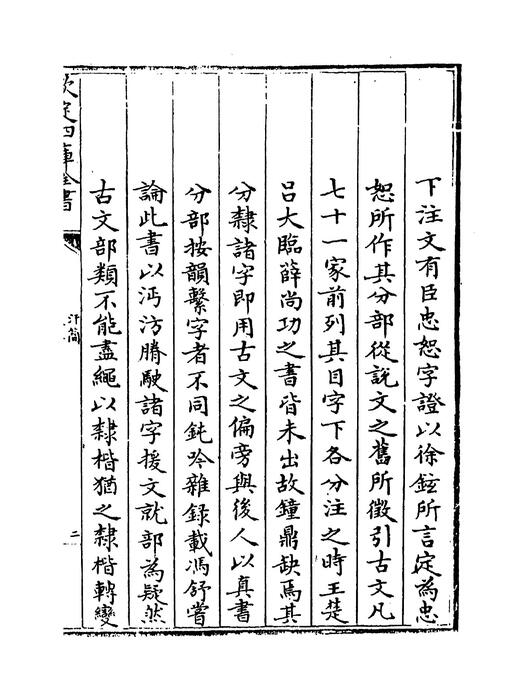 下注文有臣忠恕字證以徐鉉所言定為忠
恕所作其分部從說文之舊所徵引古文凡
七十一家前列其目字下各分注之時王楚
吕大臨薛尚功之書皆未出故鐘鼎缺焉其
分隸諸字即用古文之偏旁與後人以真書
分部按韻繫字者不同鈍吟雜錄載馮舒嘗
論此書以沔汸腾駛諸字援文就部為疑然
古文部類不能盡繩以隸楷猶之隸楷轉變
欽定四庫全書
汗簡
二